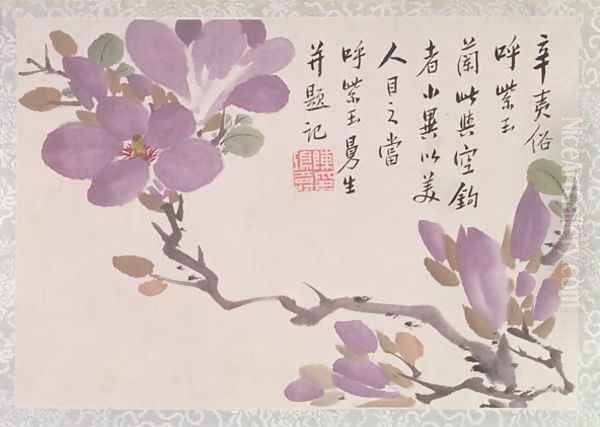 辛夷俗
呼紫玉
蘭此與空鉤
者小異以美
人目之當
呼紫玉曼生
并題記